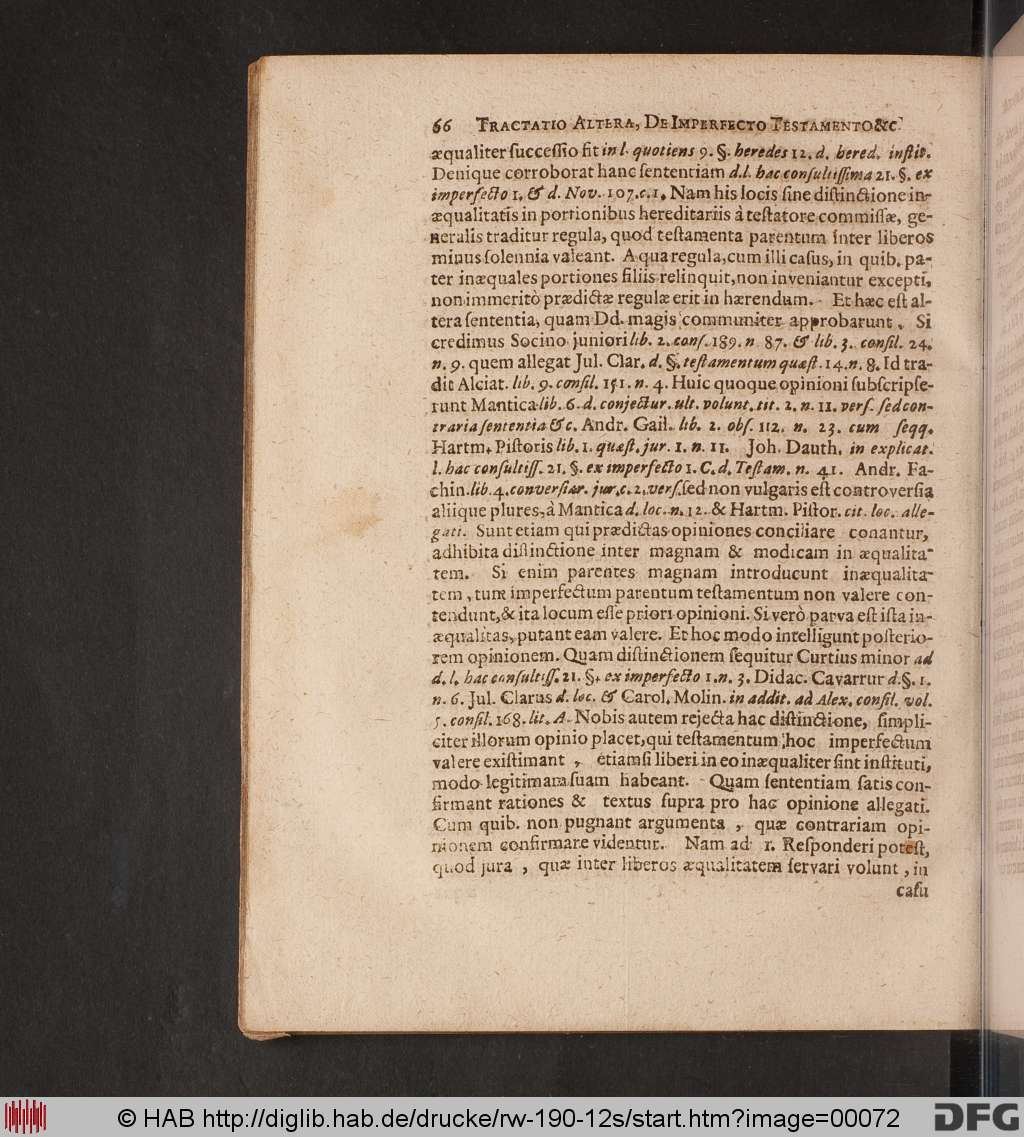 66 TRACTATIO ALTERA, DE IMPERFECTO TESTAMENTO &C.
æqualiter ſucceſſio fit in l. quotiens 9. §. heredes 12. d. hered. inſtit.
Denique corroborat hanc ſententiam d.l. hac conſultiſſima 21. §. ex
imperfecto 1. & d. Nov. 107. c. 1. Nam his locis ſine diſtinctione in-
æqualitatis in portionibus hereditariis à teſtatore commiſſæ, ge-
neralis traditur regula, quod teſtamenta parentum inter liberos
minus ſolennia valeant. A qua regula, cum illi caſus, in quib. pa-
ter inæquales portiones filiis relinquit, non inveniantur excepti,
non immeritò prædictæ regulæ erit in hærendum. Et hæc eſt al-
tera ſententia, quam Dd. magis communiter approbarunt. Si
credimus Socino juniori lib. 2. conſ. 189. n. 87. & lib. 3. conſil. 24.
n. 9. quem allegat Jul. Clar. d. §. teſtamentum quæſt. 14. n. 8. Id tra-
dit Alciat. lib. 9. conſil. 151. n. 4. Huic quoque opinioni ſubſcripſe-
runt Mantica lib. 6. d. conjectur. ult. volunt. tit. 2. n. 11. verſ. ſed con-
traria ſententia &c. Andr. Gail. lib. 2. obſ. 112. n. 23. cum ſeqq.
Hartm. Piſtoris lib. 1. quæſt. jur. 1. n. 11. Joh. Dauth. in explicat.
l. hac conſultiſſ. 21. §. ex imperfecto 1. C. d. Teſtam. n. 41. Andr. Fa-
chin. lib. 4. converſiar. jur. c. 2. verſ. ſed non vulgaris eſt controverſia
aliique plures, à Mantica d. loc. n. 12. & Hartm. Piſtor. cit. loc. alle-
gati. Sunt etiam qui prædictas opiniones conciliare conantur,
adhibita diſtinctione inter magnam & modicam in æqualita-
tem. Si enim parentes magnam introducunt inæqualita-
tem, tum imperfectum parentum teſtamentum non valere con-
tendunt, & ita locum eſſe priori opinioni. Si verò parva eſt iſta in-
æqualitas, putant eam valere. Et hoc modo intelligunt poſterio-
rem opinionem. Quam diſtinctionem ſequitur Curtius minor ad
d. l. hac conſultiſſ. 21. §. ex imperfecto 1. n. 3. Didac. Cavarrur d. §. 1.
n. 6. Jul. Clarus d. loc. & Carol. Molin. in addit. ad Alex. conſil. vol.
5. conſil. 168. lit. A. Nobis autem rejecta hac diſtinctione, ſimpli-
citer illorum opinio placet, qui teſtamentum hoc imperfectum
valere exiſtimant, etiamſi liberi in eo inæqualiter ſint inſtituti,
modo legitimam ſuam habeant. Quam ſententiam ſatis con-
firmant rationes & textus ſupra pro hac opinione allegati.
Cum quib. non pugnant argumenta, quæ contrariam opi-
nionem confirmare videntur. Nam ad 1. Reſponderi poteſt,
quod jura, quæ inter liberos æqualitatem ſervari volunt, in
caſu
© HAB http://diglib.hab.de/drucke/rw-190-12s/start.htm?image=00072
DFG